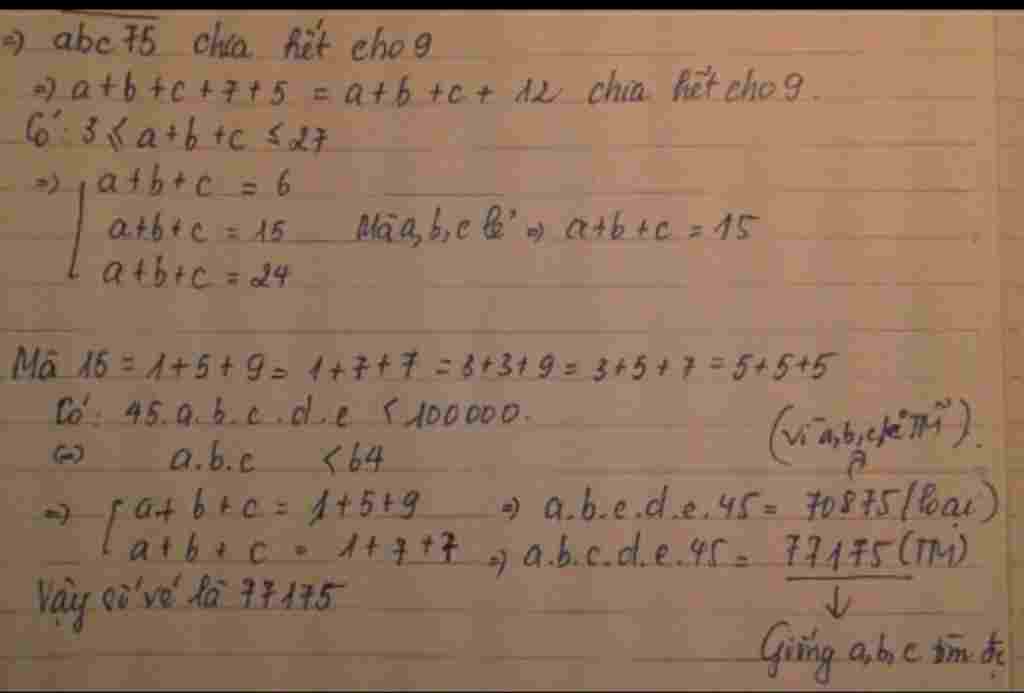 =) abc75 chia hết cho 9
=) a+b+c+7+5 = a+b+c+ 12 chia hết cho 9.
Có: 3 ≤ a+b+c ≤ 27
=) a+b+c = 6
a+b+c = 15 Mà a,b,c lẻ =) a+b+c = 15
a+b+c = 24
Mà 15 = 1+5+9 = 1+7+7 = 3+3+9 = 3+5+7 = 5+5+5
Có: 45.a.b.c.d.e < 100000.
(=) a.b.c < 64 (vì a,b,c lẻ TM).
=) a+b+c = 1+5+9 =) a.b.c.d.e.45 = 70875 (loại)
a+b+c = 1+7+7 =) a.b.c.d.e.45 = 77175 (TM)
Vậy số vé là 77175
↓
Giống a,b,c tìm đc